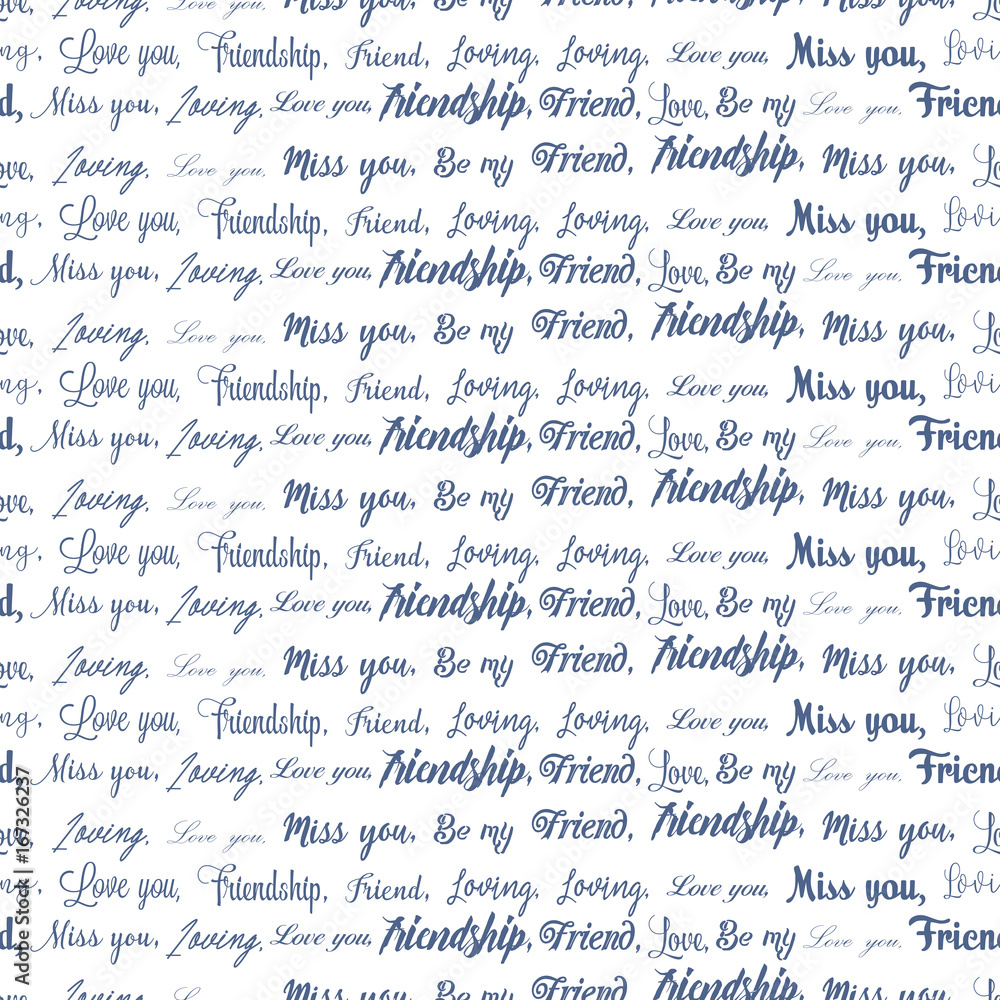 ove, Loving, Love you, Miss you, Be my Friend, Friendship, Miss you,
ng, Love you, Friendship, Friend, Loving, Loving, Love you, Miss you, Lovi
d, Miss you, Loving, Love you, Friendship, Friend, Love, Be my Love you, Frien
ove, Loving, Love you, Miss you, Be my Friend, Friendship, Miss you, Lo
ng, Love you, Friendship, Friend, Loving, Loving, Love you, Miss you, Lovi
d, Miss you, Loving, Love you, Friendship, Friend, Love, Be my Love you, Frien
ove, Loving, Love you, Miss you, Be my Friend, Friendship, Miss you, Lo
ng, Love you, Friendship, Friend, Loving, Loving, Love you, Miss you, Lovi
d, Miss you, Loving, Love you, Friendship, Friend, Love, Be my Love you, Frien
ove, Loving, Love you, Miss you, Be my Friend, Friendship, Miss you, Lo
ng, Love you, Friendship, Friend, Loving, Loving, Love you, Miss you, Lovi
d, Miss you, Loving, Love you, Friendship, Friend, Love, Be my Love you, Frien
ove, Loving, Love you, Miss you, Be my Friend, Friendship, Miss you, Lo
ng, Love you, Friendship, Friend, Loving, Loving, Love you, Miss you, Lovi
d, Miss you, Loving, Love you, Friendship, Friend, Love, Be my Love you, Frien
ove, Loving, Love you, Miss you, Be my Friend, Friendship, Miss you, Lo
ng, Love you, Friendship, Friend, Loving, Loving, Love you, Miss you, Lovi
d, Miss you, Loving, Love you, Friendship, Friend, Love, Be my Love you, Frien
Loving, Love you, Miss you, Be my Friend, Friendship, Miss you,
Adobe Stock | #167326237